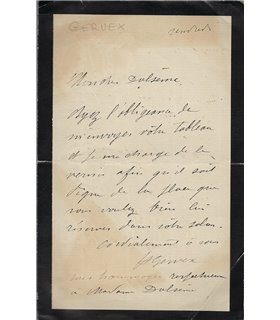 GERVEX
vendredi
Mon cher Dulséme
Ayez l'obligeance de
m'envoyer vôtre tableau
et je me charge de le
vernir afin qu'il soit
digne de la place que
vous voulez bien lui
réserver dans vôtre salon.
Cordialement à vous
H Gervex
mes hommages respectueux
à Madame Dulséme